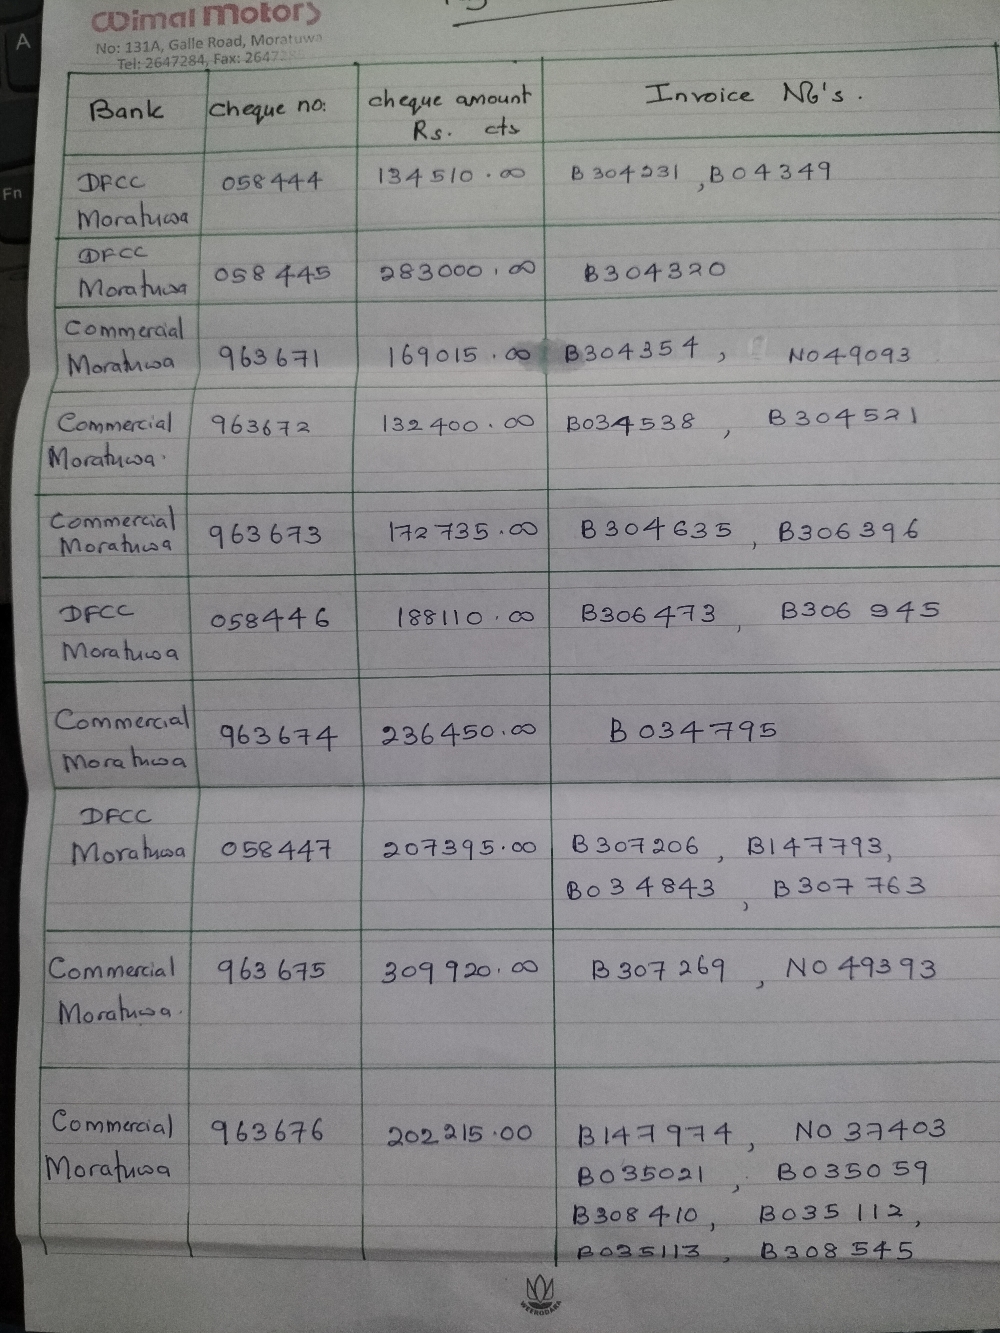 Wimal Motors
No: 131A, Galle Road, Moratuwa
Tel: 2647284, Fax:
Bank cheque no: cheque amount Invoice No's.
Rs. cts
DFCC 058444 134510.00 B304231, B04349
Moratuwa
DFCC
Moratuwa 058445 283000.00 B304320
Commercial
Moratuwa 963671 169015.00 B304354, NO49093
Commercial 963672 132400.00 B034538, B304521
Moratuwa.
Commercial
Moratuwa 963673 172735.00 B304635, B306396
DFCC 058446 188110.00 B306473, B306945
Moratuwa
Commercial
963674 236450.00 B034795
Moratuwa
DFCC
Moratuwa 058447 207395.00 B307206, B147793,
B034843, B307763
Commercial 963675 309920.00 B307269, NO49393
Moratuwa.
Commercial 963676 202215.00 B147974, NO37403
Moratuwa B035021, B035059
B308410, B035112,
B035113, B308545
WEERODARA
A
Fn